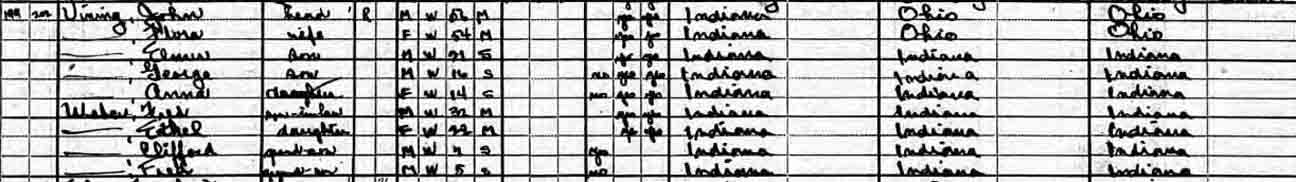 199 202 Vining, John head R M W 56 M yes yes Indiana Ohio Ohio
Flora wife F W 54 M yes yes Indiana Ohio Ohio
son M W 21 S yes yes Indiana Indiana Indiana
George son M W 16 S no yes yes Indiana Indiana Indiana
Anna daughter F W 14 S no yes yes Indiana Indiana Indiana
Fred son-in-law M W 32 M yes yes Indiana Indiana Indiana
Ethel daughter F W 22 M yes yes Indiana Indiana Indiana
Clifford grand-son M W S yes Indiana Indiana Indiana
Fred grand-son M W 5 S no Indiana Indiana Indiana